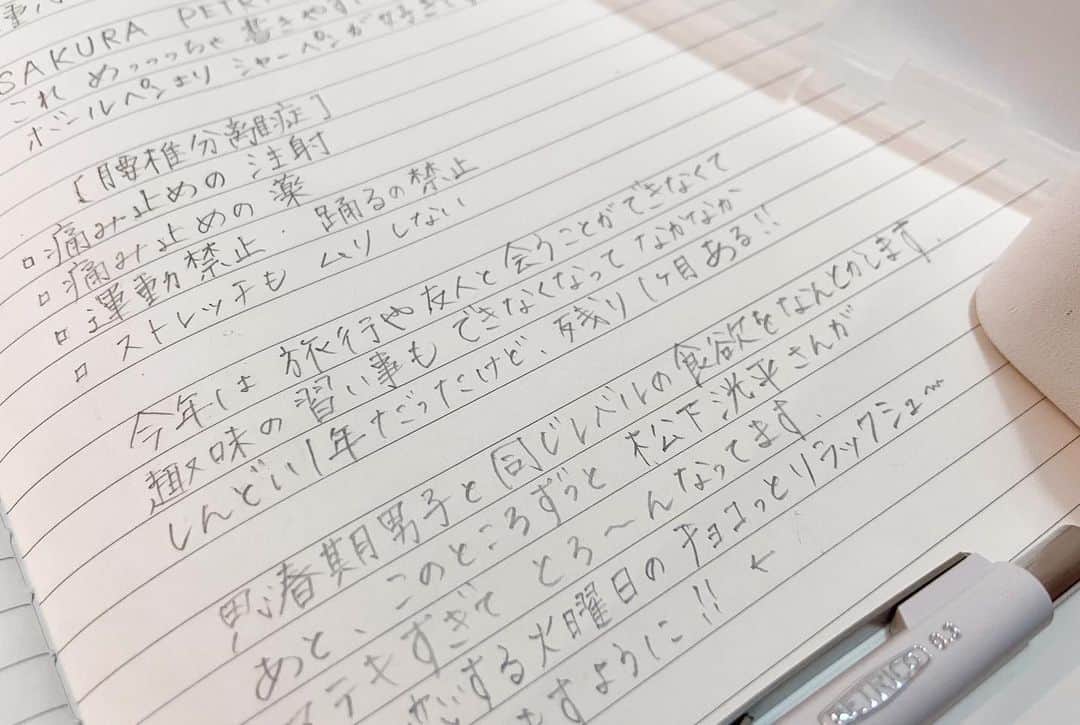 SAKURA PETR
これ めっっっちゃ 書きやす
ボールペンより シャーペンが好きです
[腰椎分離症]
□ 痛み止めの 注射
□ 痛み止めの 薬
□ 運動禁止・踊るの禁止
□ ストレッチも ムリしない
今年は 旅行や友人と会うことができなくて
趣味の習い事もできなくなってなかなか
しんどい1年だったけど、残り1ヶ月ある!!
思春期男子と同じレベルの食欲をなんとかします.
あと、このところずっと 松下洸平さんが
ステキすぎて とろ〜んなってます.
恋する火曜日のチョコっとリラックシュー〜
ますように!! ←
PETRICO 0.3